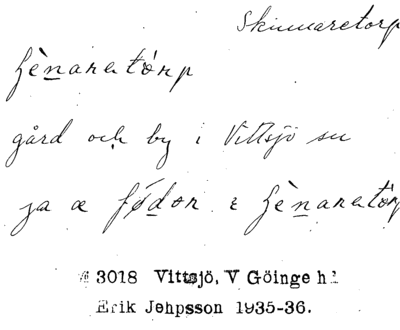 Skinnaretorp
hènaratòrp
gård och by i Vittsjö sn
ja æ fódər i hènaratòrp
3018 Vittsjö, V Göinge hd
Erik Jehpsson 1935-36.